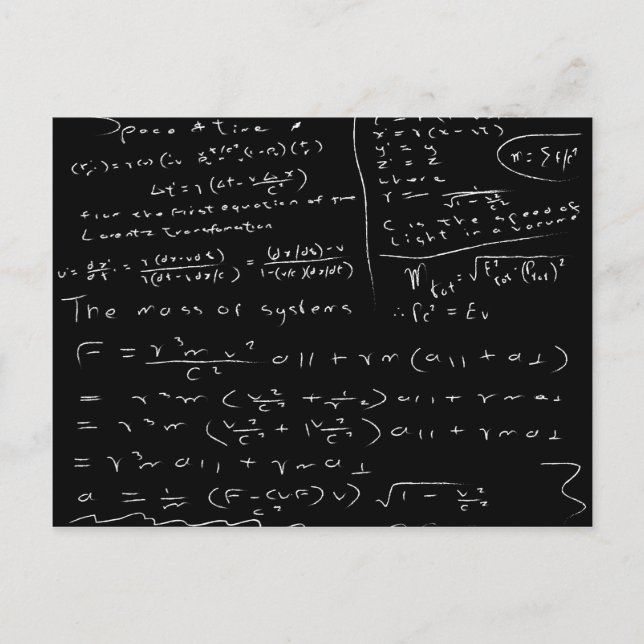 Space & time
Δt' = γ (Δt - v Δx / c²)
from the first equation of the
Lorentz Transformation
u' = dx' / dt' = γ(dx - v dt) / γ(dt - v dx/c) = (dx/dt) - v / 1 - (v/c)(dx/dt)
The mass of systems
x' = γ (x - vt)
y' = y
z' = z
where
γ = 1 / √1 - v²/c²
c is the speed of
light in a vacume
m = Σ E/c²
∴ Pc² = Ev
F = γ³ m v² / c² a|| + γm (a|| + a⊥)
= γ³m (v²/c² + 1/γ²) a|| + γ m a⊥
= γ³m (v²/c² + 1 v²/c²) a|| + γ m a⊥
= γ³m a|| + γm a⊥
a = 1/m (F - (v F) v / c²) √1 - v²/c²